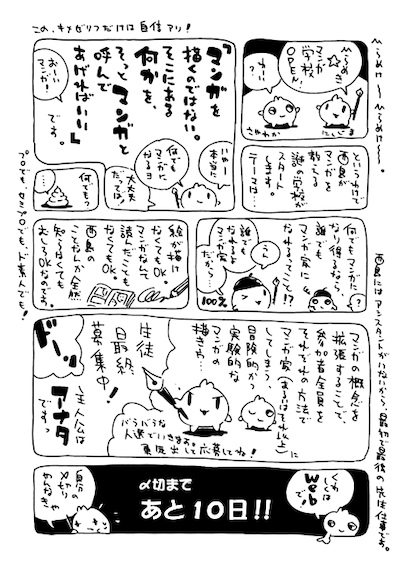 この、キメゼリフだけは自信アリ!
ひらめき☆
マンガ
学校
OPEN!
わーい
さやわか
にしじま
というわけで
西島が
マンガを
教える
謎の学校が
スタート
します。
テーマは…
『マンガを
描くのではない。
そこにある
何かを、
そっとマンガと
呼んで
あげればいい』
です。
おーい
マンガ!
いやー
本当に
何でも
マンガに
なるヨ
大丈夫
だってば!
何でも?
…
何でもマンガに
なり得るなら、
誰でも
マンガ家に
なれるってこと!?
?
うん
誰でも
なれるよ
マンガ家
だから…
100%
絵が描け
なくてもOK。
マンガなんて
読んだことも
なくてもOK。
西島の
ことなんか全然
知らなくても
むしろOKなのです。
プロでも、セミプロでも、ド素人でも!
西島にはアシスタントがいないから、最初で最後の先生仕事です。
マンガの概念を
拡張することで、
参加者全員を
それぞれの方法で
マンガ家(またはそれ以上)に
してしまう、
冒険的かつ
実験的な
マンガの
描き方…
生徒
最終
募集中!
ドドーッ
主人公は
アナタ
ですっ
バラバラな
人選でいきます。
勇気出して応募してね!
くわしくは
Webで!
〆切まで
あと10日!!
自分の
〆切り
やめんなさい